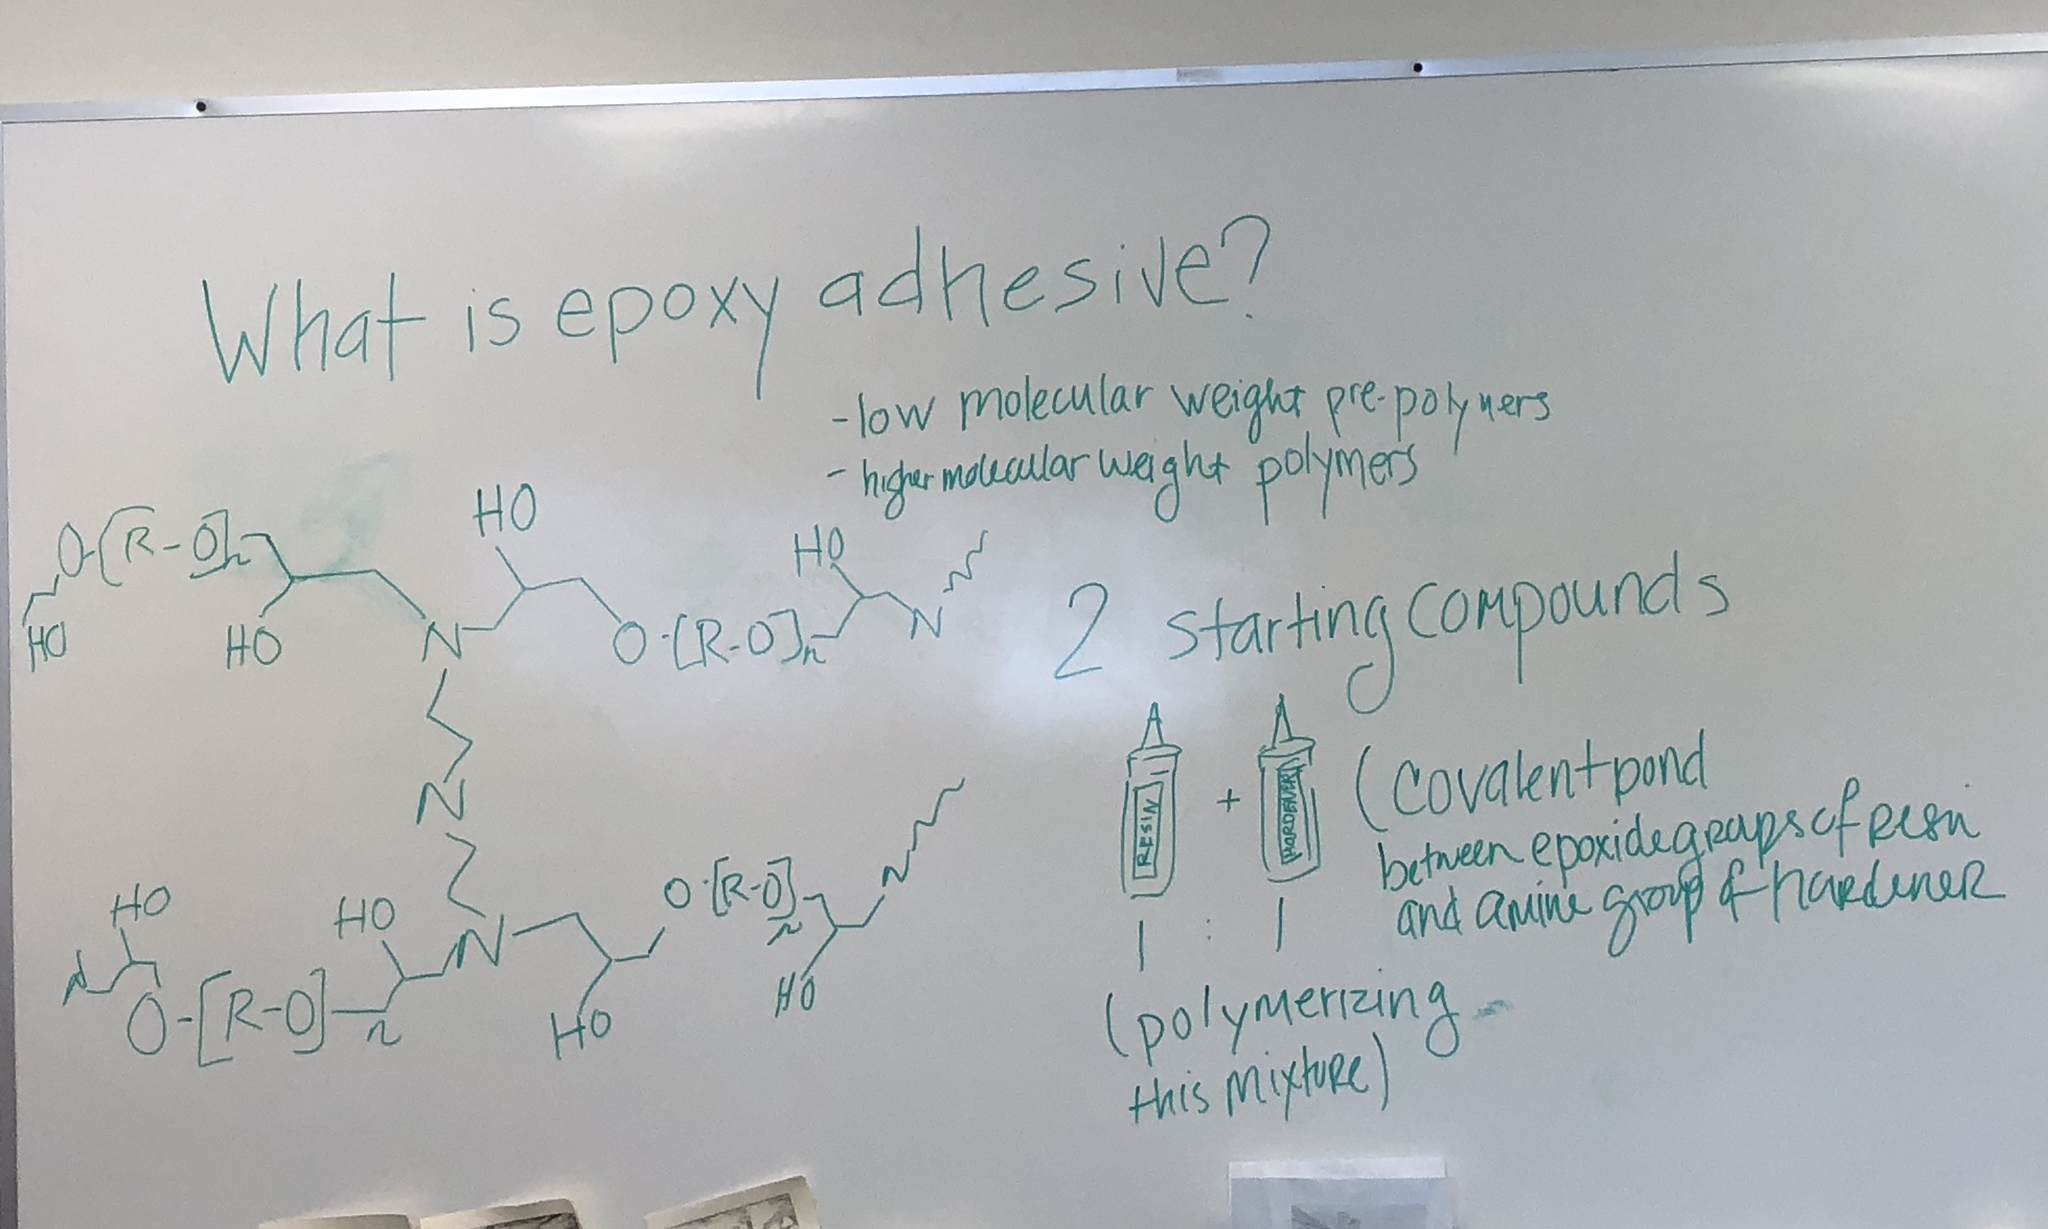 What is epoxy adhesive?
-low molecular weight pre-polymers
- higher molecular weight polymers
HO
O-[R-O]n
HO
HO
HO
N
O-[R-O]n
N
2 starting compounds
RESIN
+
HARDENER
(covalent pond
between epoxide groups of resin
and amine group of hardener
1 : 1
(polymerizing
this mixture)
N
HO
HO
N
O-[R-O]n
N
HO
N
O-[R-O]n
HO